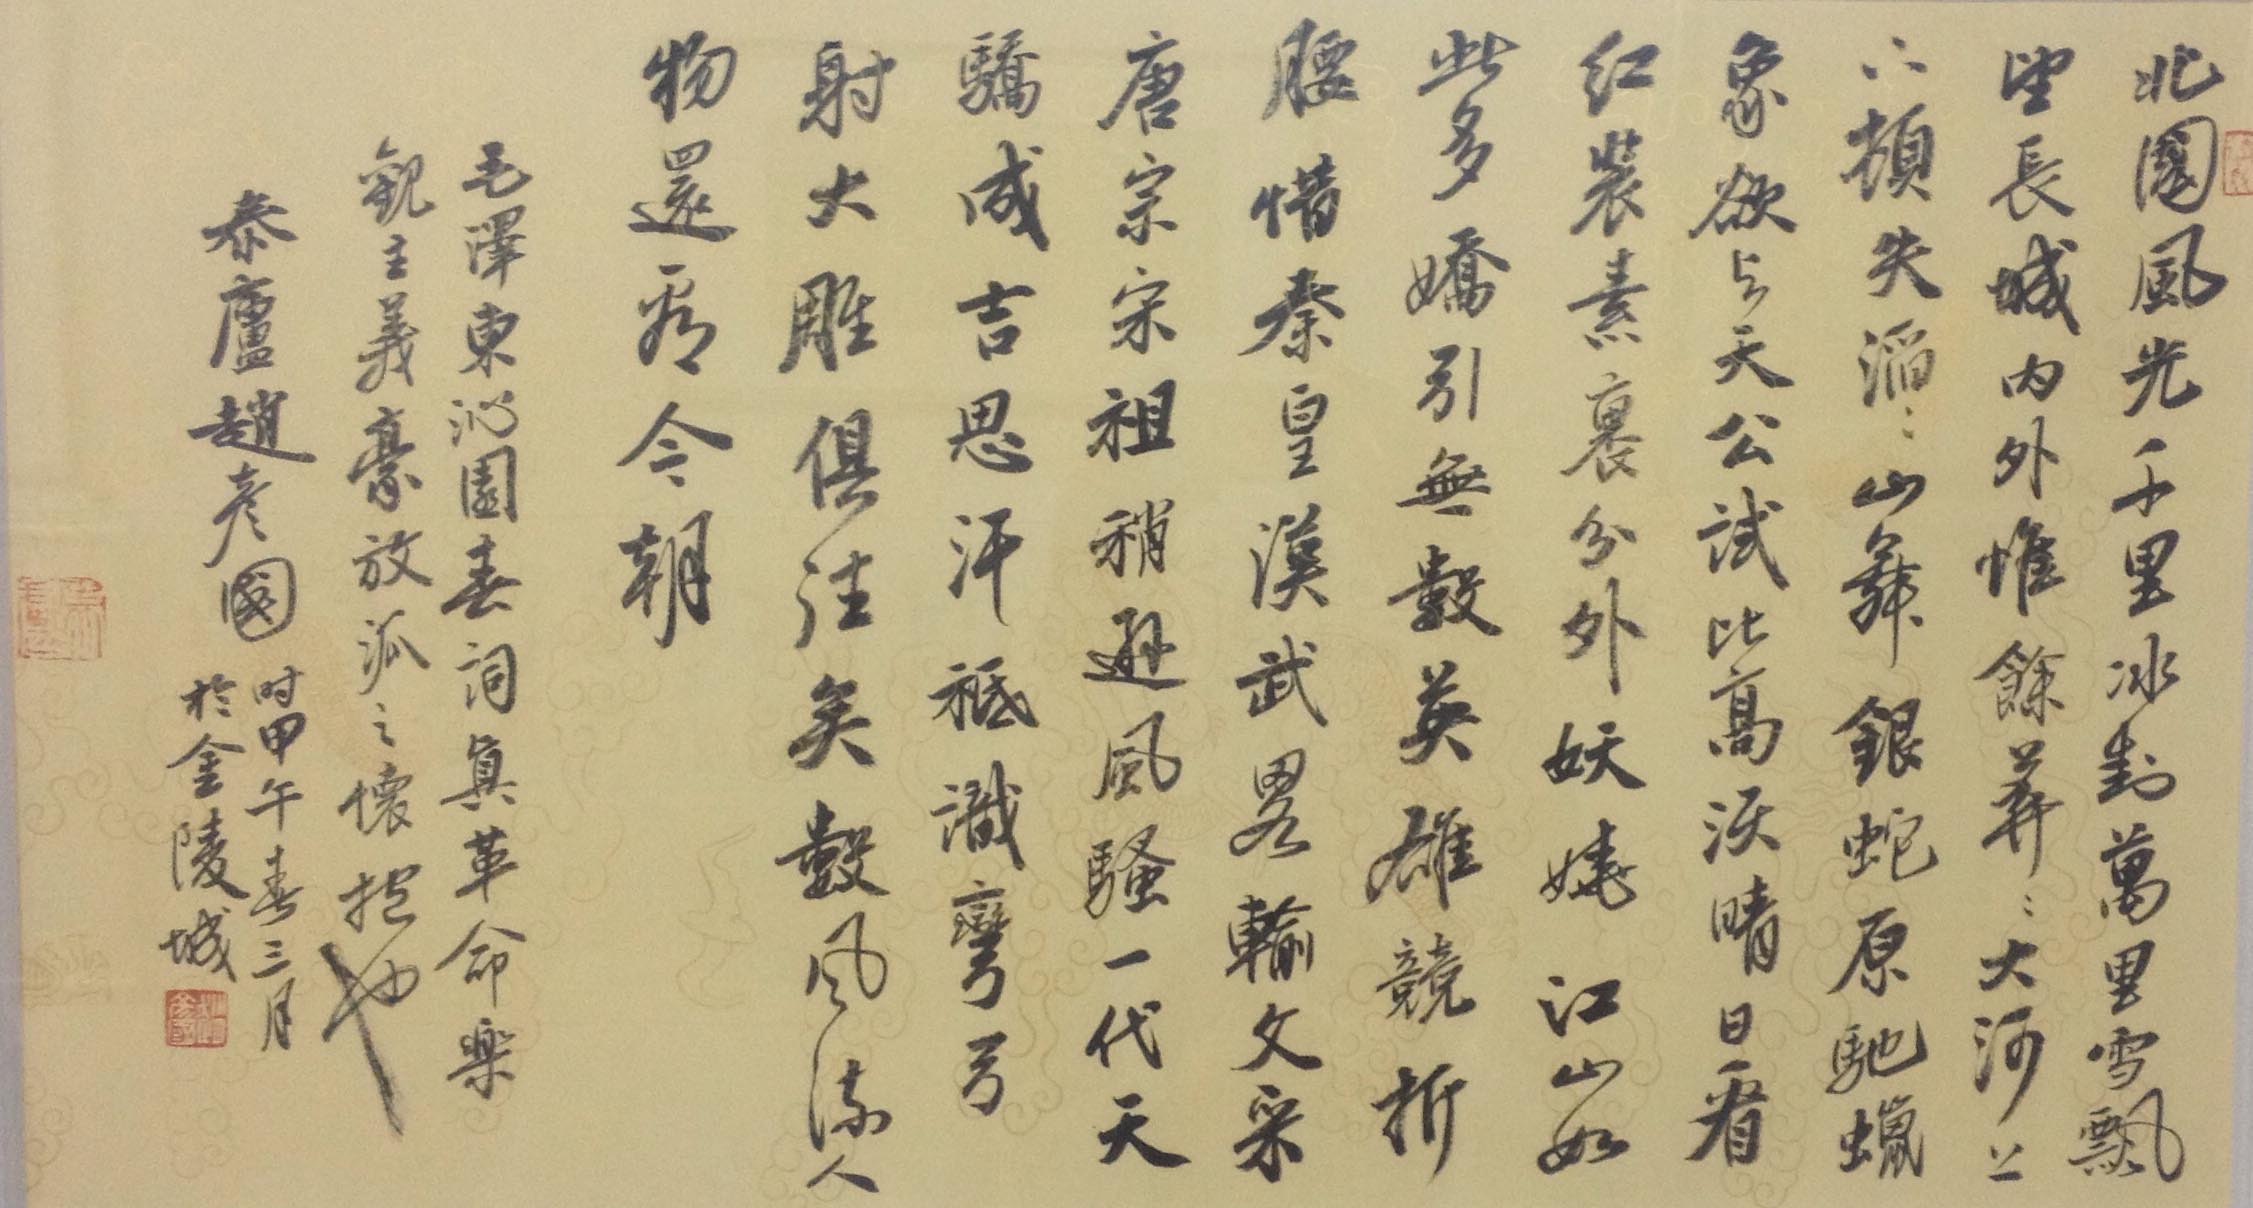 北國風光千里冰封萬里雪飄
望長城內外惟餘莽〻大河上
下頓失滔〻山舞銀蛇原馳蠟
象欲与天公試比高須晴日看
紅裝素裹分外妖嬈江山如
此多嬌引無數英雄競折
腰惜秦皇漢武畧輸文采
唐宗宋祖稍遜風騷一代天
驕成吉思汗祗識彎弓
射大雕俱往矣數风流人
物還看今朝
毛澤東沁園春詞真革命樂
觀主義豪放派之懷抱也
泰廬趙彥國
时甲午春三月
於金陵城